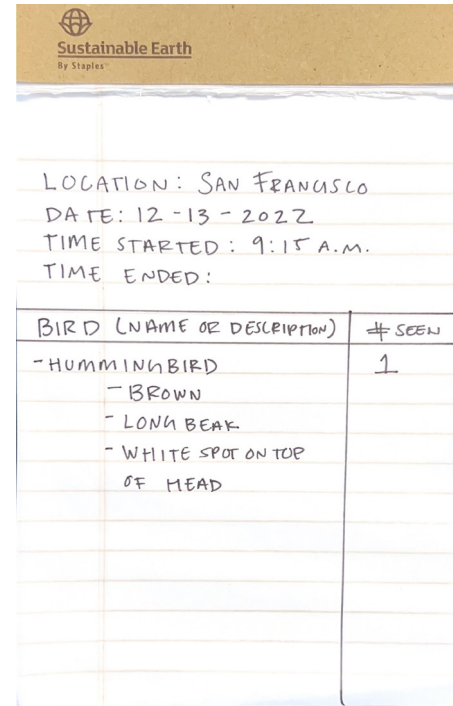 Sustainable Earth
By Staples™
LOCATION: SAN FRANCISCO
DATE: 12-13-2022
TIME STARTED: 9:15 A.M.
TIME ENDED:
BIRD (NAME OR DESCRIPTION) # SEEN
- HUMMINGBIRD 1
- BROWN
- LONG BEAK
- WHITE SPOT ON TOP
OF HEAD